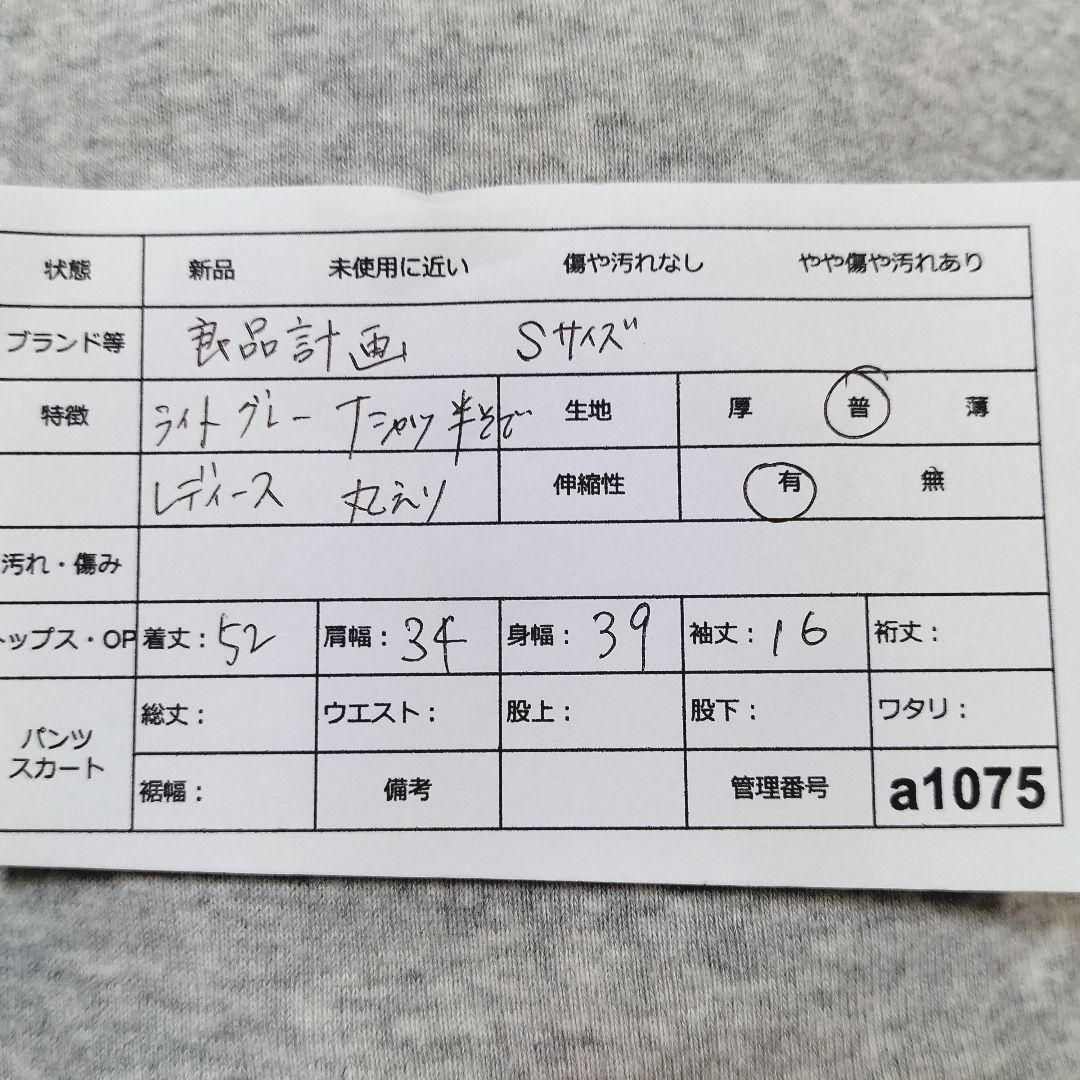 状態 新品 未使用に近い 傷や汚れなし やや傷や汚れあり
ブランド等 良品計画 Sサイズ
特徴 ライトグレー Tシャツ 半そで 生地 厚 普 薄
レディース 丸えり 伸縮性 有 無
汚れ・傷み
トップス・OP 着丈：52 肩幅：34 身幅：39 袖丈：16 裄丈：
パンツ スカート 総丈： ウエスト： 股上： 股下： ワタリ：
裾幅： 備考 管理番号 a1075